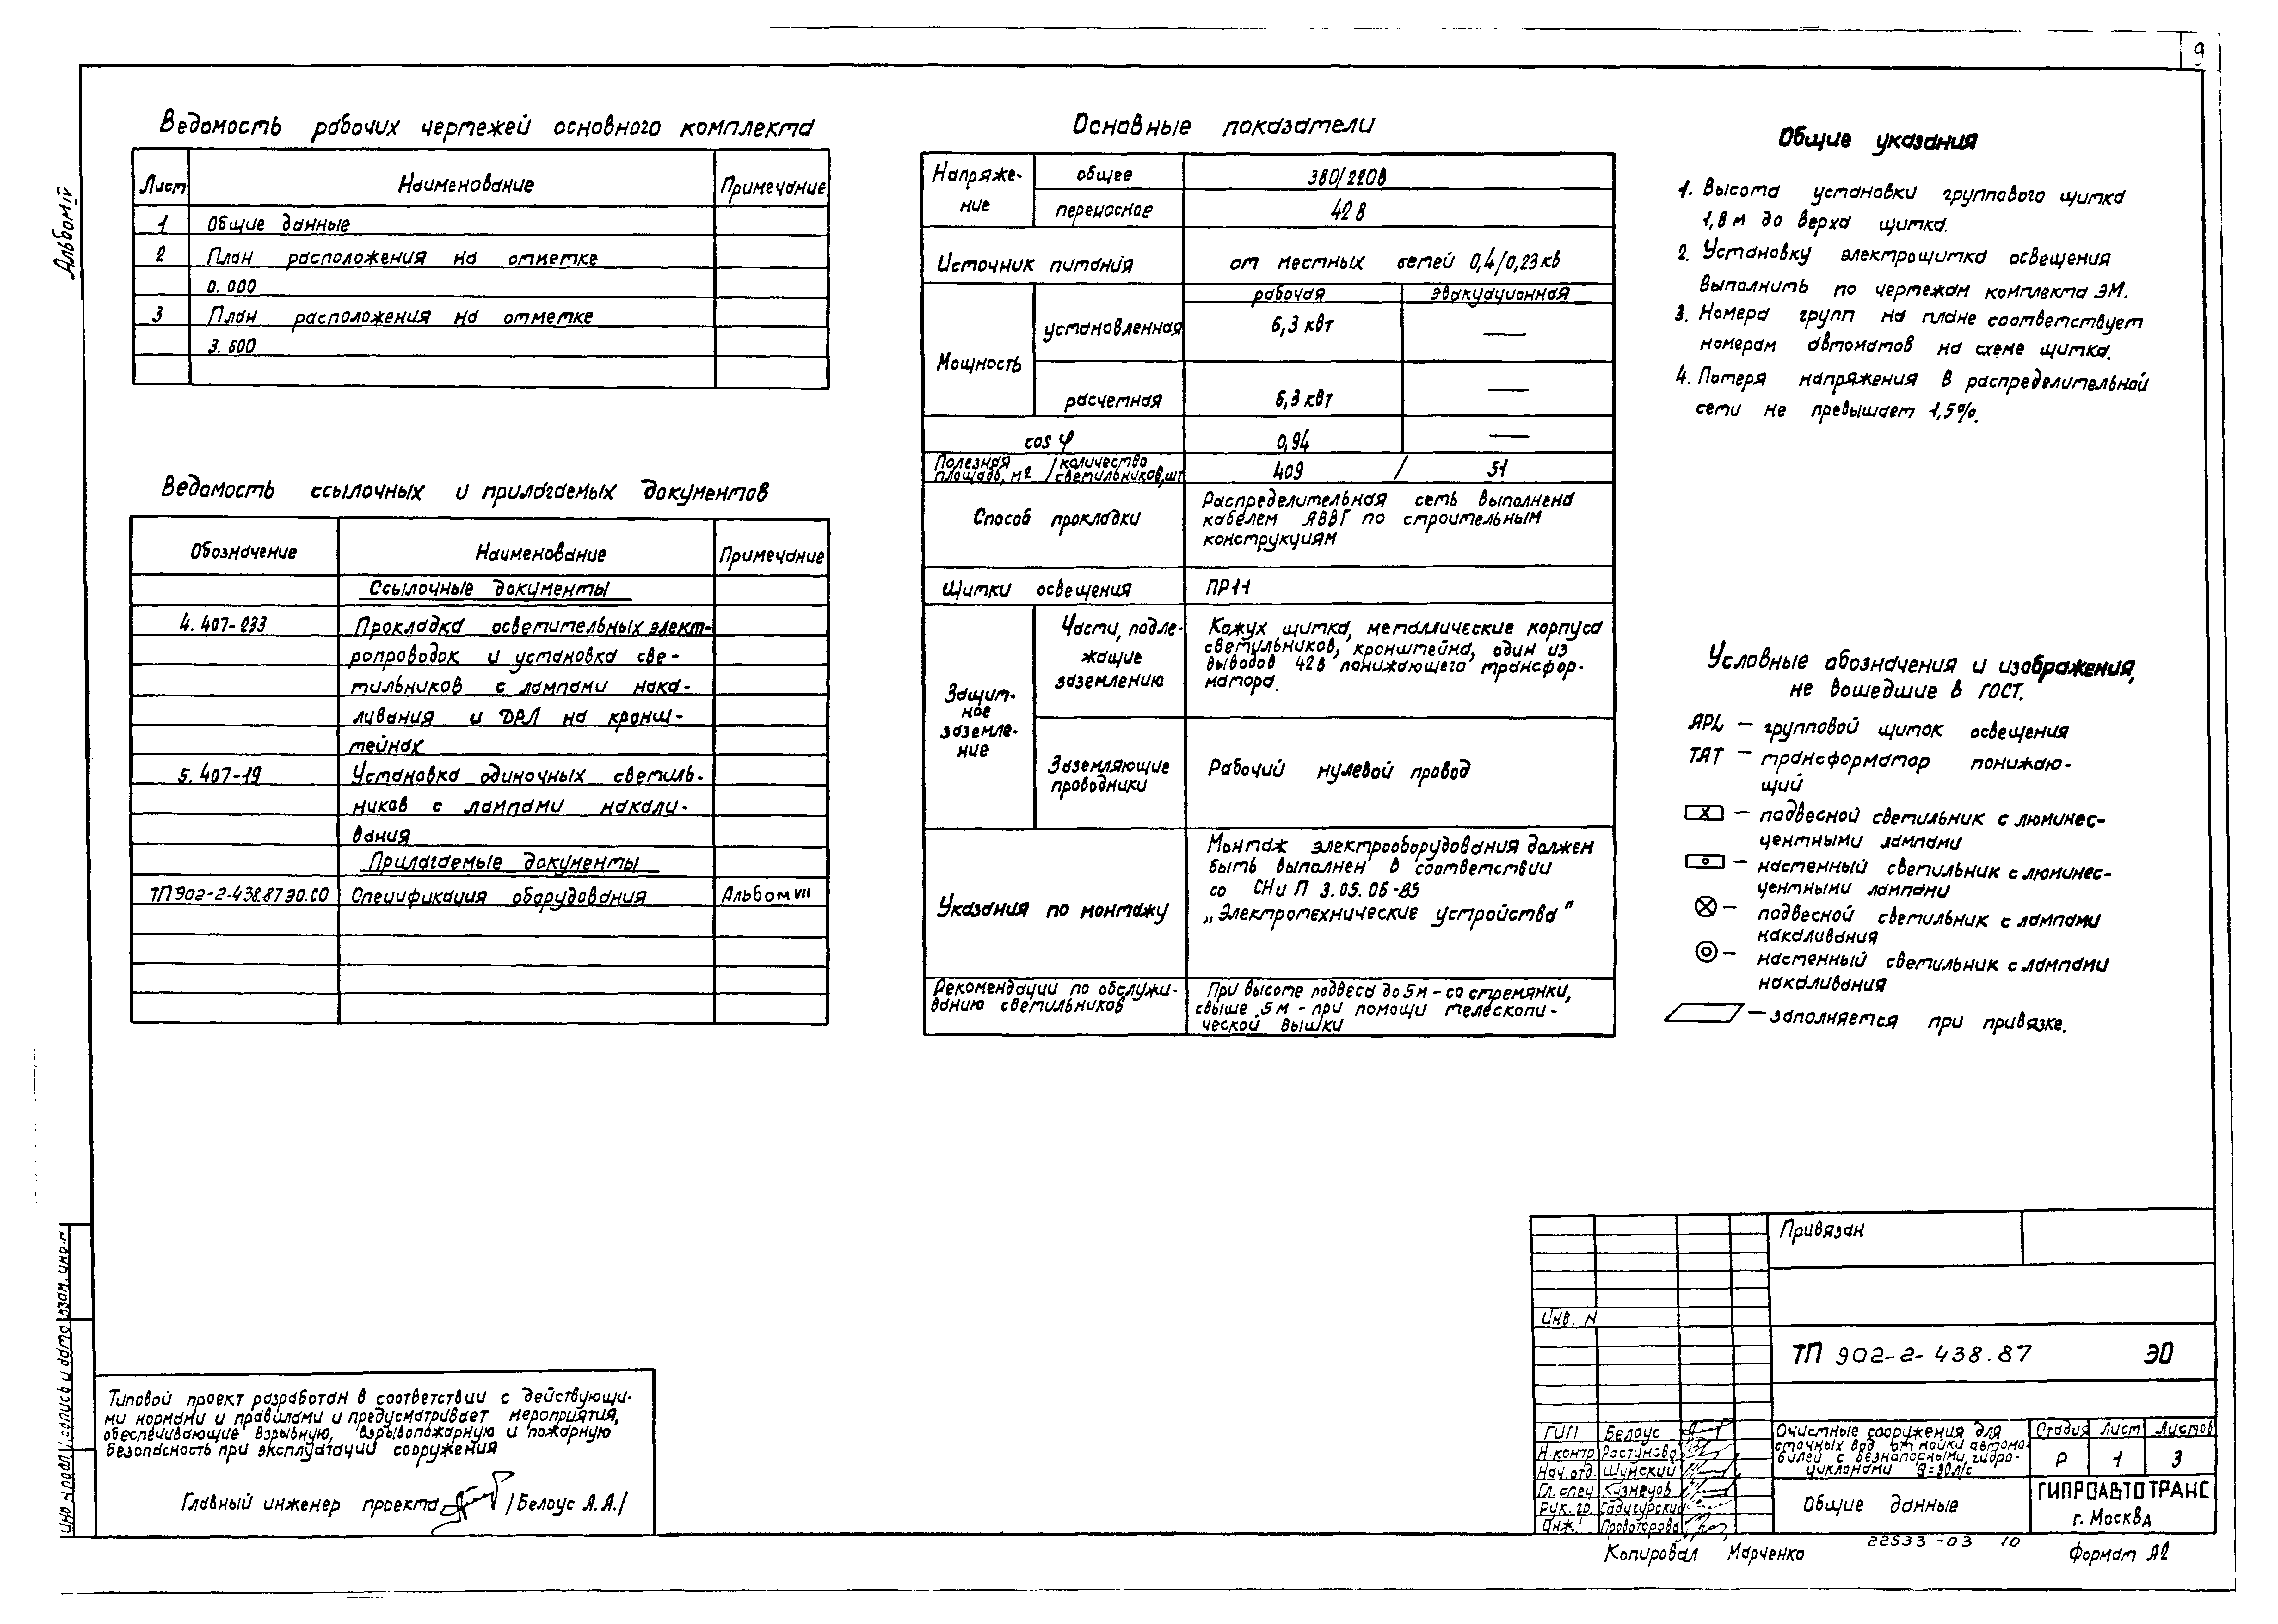 9
Альбом IV
Ведомость рабочих чертежей основного комплекта
Лист Наименование Примечание
1 Общие данные
2 План расположения на отметке
0.000
3 План расположения на отметке
3.600
Ведомость ссылочных и прилагаемых документов
Обозначение Наименование Примечание
Ссылочные документы
4.407-233 Прокладка осветительных элект-
ропроводок и установка све-
тильников с лампами нака-
ливания и ДРЛ на кронш-
тейнах
5.407-19 Установка одиночных светиль-
ников с лампами накали-
вания
Прилагаемые документы
ТП 902-2-438.87 ЭО.СО Спецификация оборудования Альбом VII
Основные показатели
Напряже-
ние
общее 380/220в
переносное 42 в
Источник питания от местных сетей 0,4/0,23 кв
рабочая эвакуационная
Мощность
установленная 6,3 квт —
расчетная 6,3 квт —
cos φ 0,94 —
Полезная площадь, м2 / количество светильников, шт 409 / 51
Способ прокладки
Распределительная сеть выполнена
кабелем АВВГ по строительным
конструкциям
Щитки освещения ПР11
Защит-
ное
заземле-
ние
Части, подле-
жащие
заземлению
Кожух щитка, металлические корпуса
светильников, кронштейна, один из
выводов 42в понижающего трансфор-
матора.
Заземляющие
проводники
Рабочий нулевой провод
Указания по монтажу
Монтаж электрооборудования должен
быть выполнен в соответствии
со СНиП 3.05.06-85
„Электротехнические устройства"
Рекомендации по обслужи-
ванию светильников
При высоте подвеса до 5м - со стремянки,
свыше 5м - при помощи телескопи-
ческой вышки
Общие указания
1. Высота установки группового щитка
1,8 м до верха щитка.
2. Установку электрощитка освещения
выполнить по чертежам комплекта ЭМ.
3. Номера групп на плане соответствует
номерам автоматов на схеме щитка.
4. Потеря напряжения в распределительной
сети не превышает 1,5%.
Условные обозначения и изображения,
не вошедшие в ГОСТ.
APL — групповой щиток освещения
ТАТ — трансформатор понижаю-
щий
X — подвесной светильник с люминес-
центными лампами
— настенный светильник с люминес-
центными лампами
— подвесной светильник с лампами
накаливания
— настенный светильник с лампами
накаливания
— заполняется при привязке.
Типовой проект разработан в соответствии с действующи-
ми нормами и правилами и предусматривает мероприятия,
обеспечивающие взрывную, взрывопожарную и пожарную
безопасность при эксплуатации сооружения
Главный инженер проекта /Белоус А.А./
Инв N подл Подпись и дата Взам. инв. N
Привязан
Инв. N
ТП 902-2-438.87 ЭО
ГИП Белоус
Н.контр. Растунова
Нач.отд. Шумский
Гл. спец Кузнецов
Рук. гр. Садигурский
Инж. Провоторова
Очистные сооружения для
сточных вод от мойки автомо-
билей с безнапорными гидро-
циклонами Q=30л/с
Стадия Лист Листов
Р 1 3
Общие данные
ГИПРОАВТОТРАНС
г. Москва
22533-03 10
Копировал Марченко Формат А2